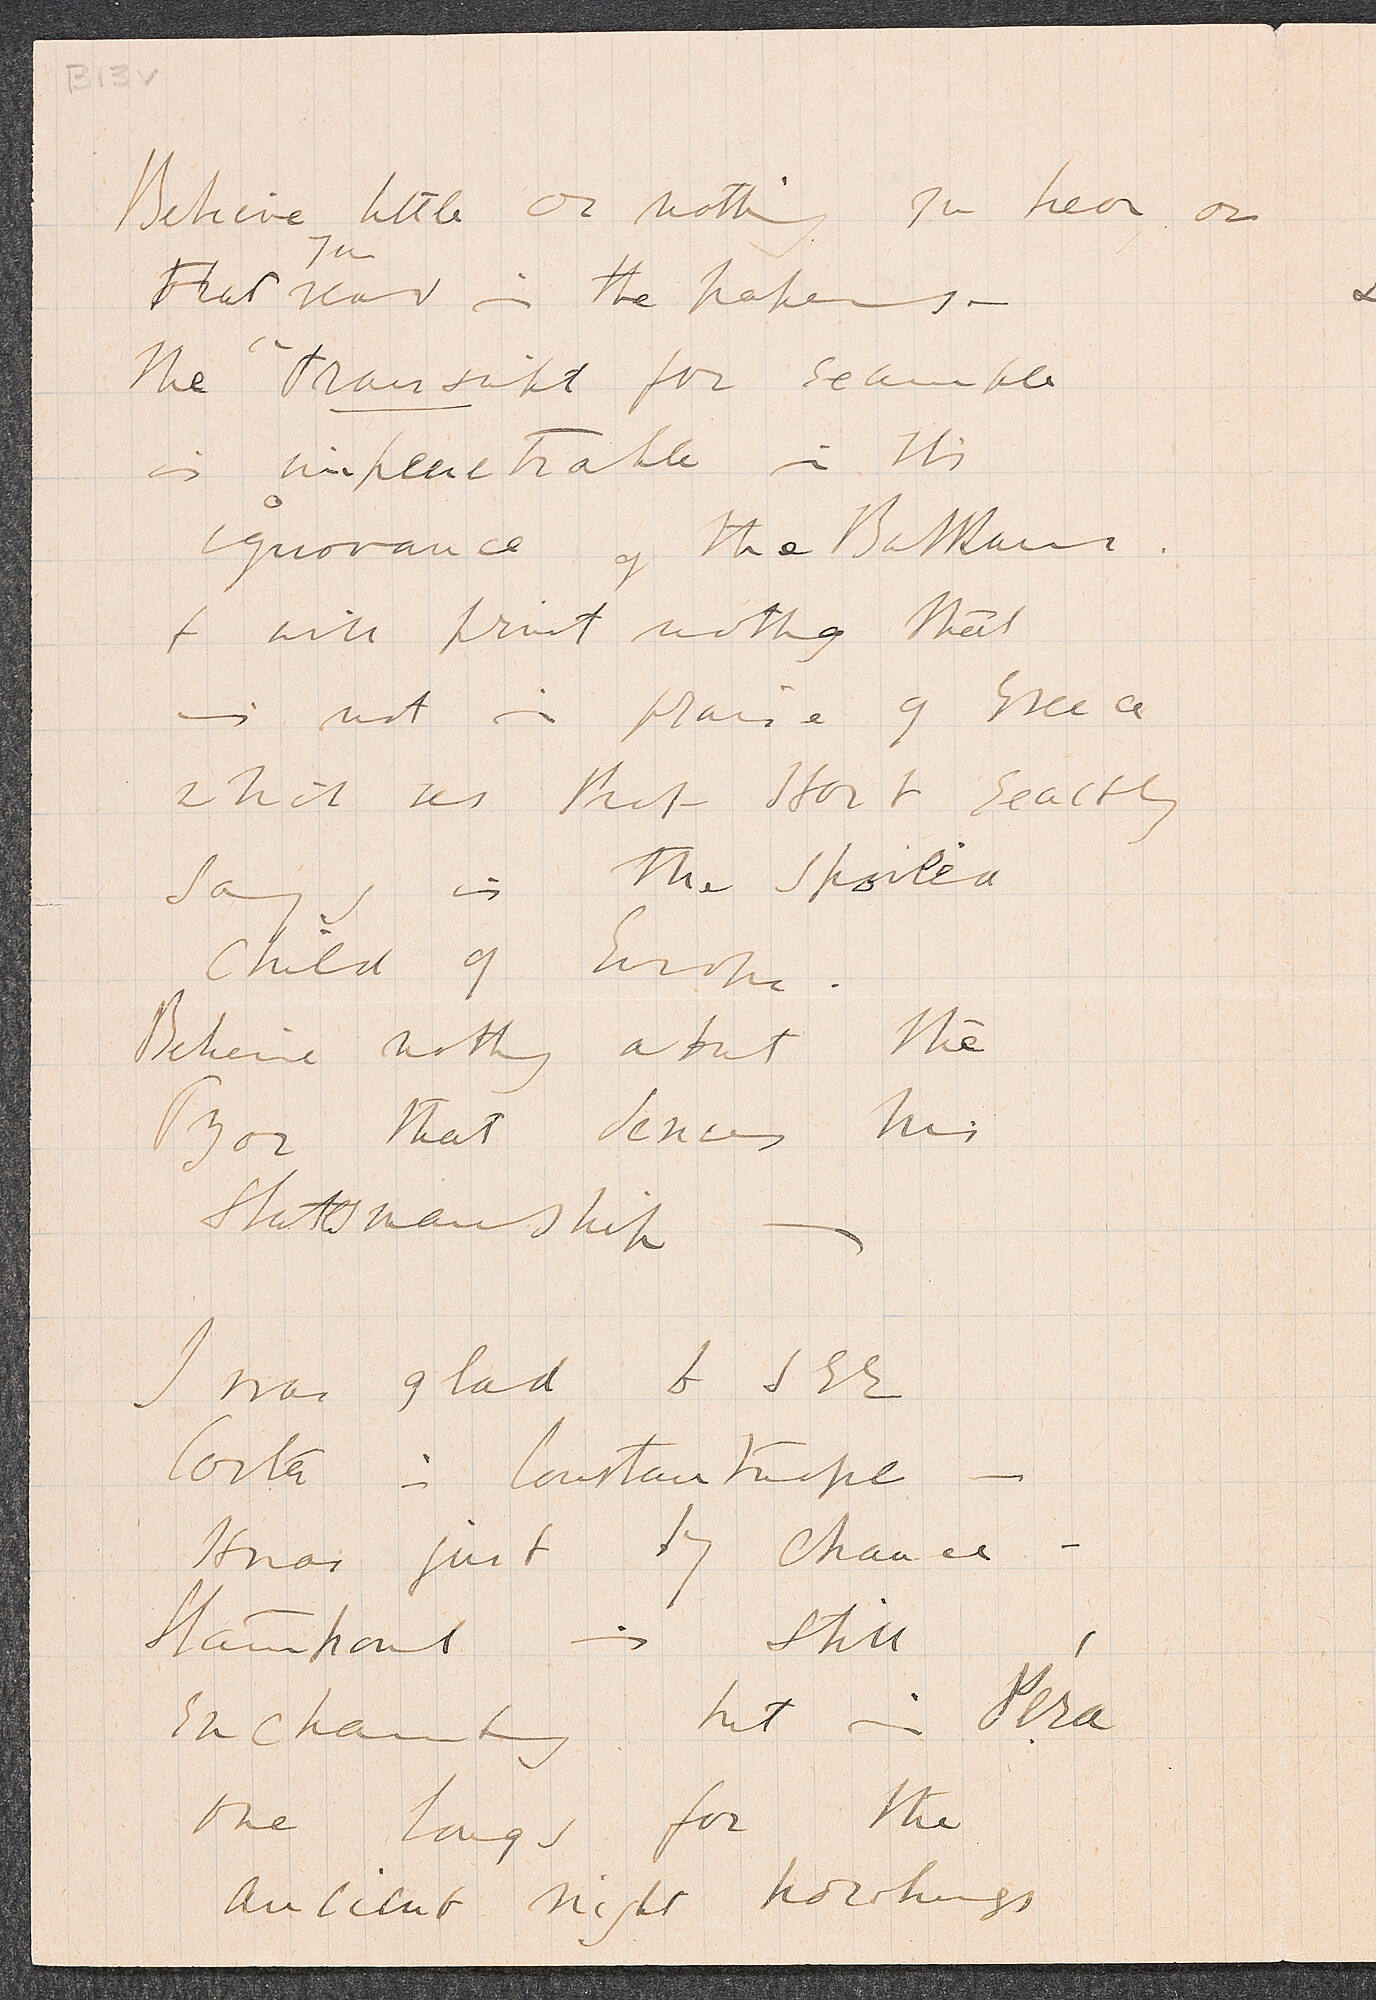 B13v
Believe little or nothing you hear or
that you read in the papers -
The "Transcript for example
is impenetrable in its
ignorance of the Balkans.
& will print nothing that
is not in praise of Greece
which as Prof Hart exactly
says is the spoiled
child of Europe.
Believe nothing about the
that denies his
Statesmanship —
I was glad to SEE
in Constantinople —
It was just by chance -
Stamboul is still
enchanting but in Péra
one longs for the
ancient night howlings